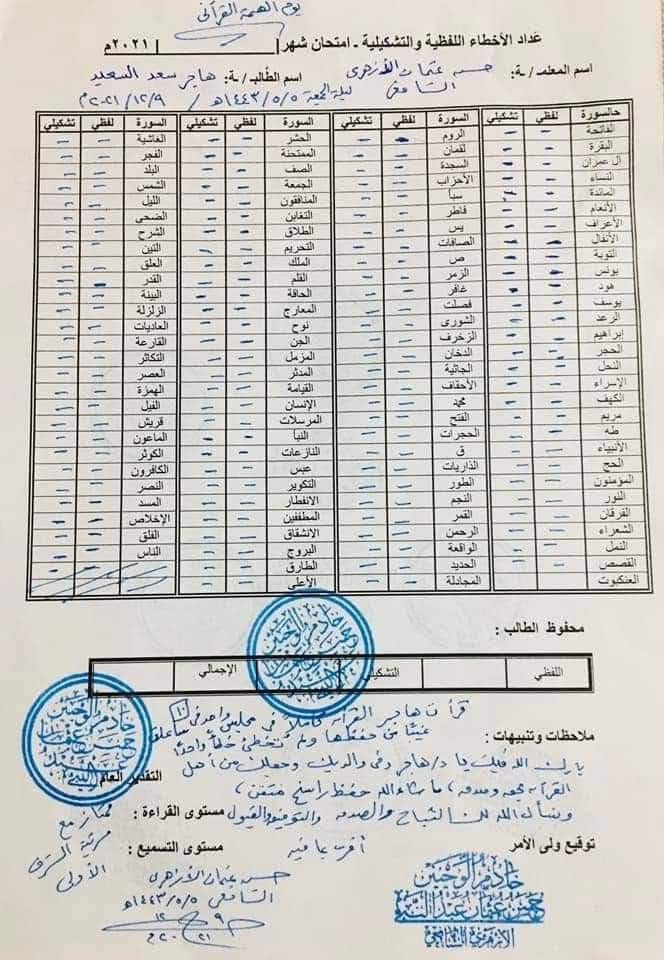 يوم الهمة القرآنى
عداد الأخطاء اللفظية والتشكيلية - امتحان شهر | | ٢٠٢١م
اسم المعلمـ /ـة: حسن عثمان الأزهرى الشافعى اسم الطَّالبـ /ـة: هاجر سعد السعيد
ليلة الجمعة ١٤٤٣/٥/٥هـ / ٢٠٢١/١٢/٩م
السورة لفظي تشكيلي السورة لفظي تشكيلي السورة لفظي تشكيلي السورة لفظي تشكيلي
الفاتحة - - الروم - - الحشر - - الغاشية - -
البقرة - - لقمان - - الممتحنة - - الفجر - -
آل عمران - - السجدة - - الصف - - البلد - -
النساء - - الأحزاب - - الجمعة - - الشمس - -
المائدة - - سبأ - - المنافقون - - الليل - -
الأنعام - - فاطر - - التغابن - - الضحى - -
الأعراف - - يس - - الطلاق - - الشرح - -
الأنفال - - الصافات - - التحريم - - التين - -
التوبة - - ص - - الملك - - العلق - -
يونس - - الزمر - - القلم - - القدر - -
هود - - غافر - - الحاقة - - البينة - -
يوسف - - فصلت - - المعارج - - الزلزلة - -
الرعد - - الشورى - - نوح - - العاديات - -
إبراهيم - - الزخرف - - الجن - - القارعة - -
الحجر - - الدخان - - المزمل - - التكاثر - -
النحل - - الجاثية - - المدثر - - العصر - -
الإسراء - - الأحقاف - - القيامة - - الهمزة - -
الكهف - - محمد - - الإنسان - - الفيل - -
مريم - - الفتح - - المرسلات - - قريش - -
طه - - الحجرات - - النبأ - - الماعون - -
الأنبياء - - ق - - النازعات - - الكوثر - -
الحج - - الذاريات - - عبس - - الكافرون - -
المؤمنون - - الطور - - التكوير - - النصر - -
النور - - النجم - - الانفطار - - المسد - -
الفرقان - - القمر - - المطففين - - الإخلاص - -
الشعراء - - الرحمن - - الانشقاق - - الفلق - -
النمل - - الواقعة - - البروج - - الناس - -
القصص - - الحديد - - الطارق - -
العنكبوت - - المجادلة - - الأعلى - -
محفوظ الطالب :
اللفظي التشكيلي الإجمالي
ملاحظات وتنبيهات :
قرأت هاجر القرآن كاملاً في مجلس واحد فى ١٠
غيبًا من حفظها ولم تخطئ خطأً واحدًا
بارك الله فيك يا د/هاجر وفى والديك وجعلك من أهل
القرآن ، ما شاء الله حفظ راسخ متقن ،
ونسأل الله لك الثبات والصدق والتوفيق والقبول
التقدير العام :
ممتاز مع
مرتبة الشرف
الأولى
مستوى القراءة :
مستوى التسميع :
توقيع ولى الأمر
حسن عثمان الأزهرى
الشافعى ١٤٤٣/٥/٥هـ
٩
١٢
٢٠٢١م
خادم الوحيين
حسن عثمان عبد النبي
الأزهري الشافعي